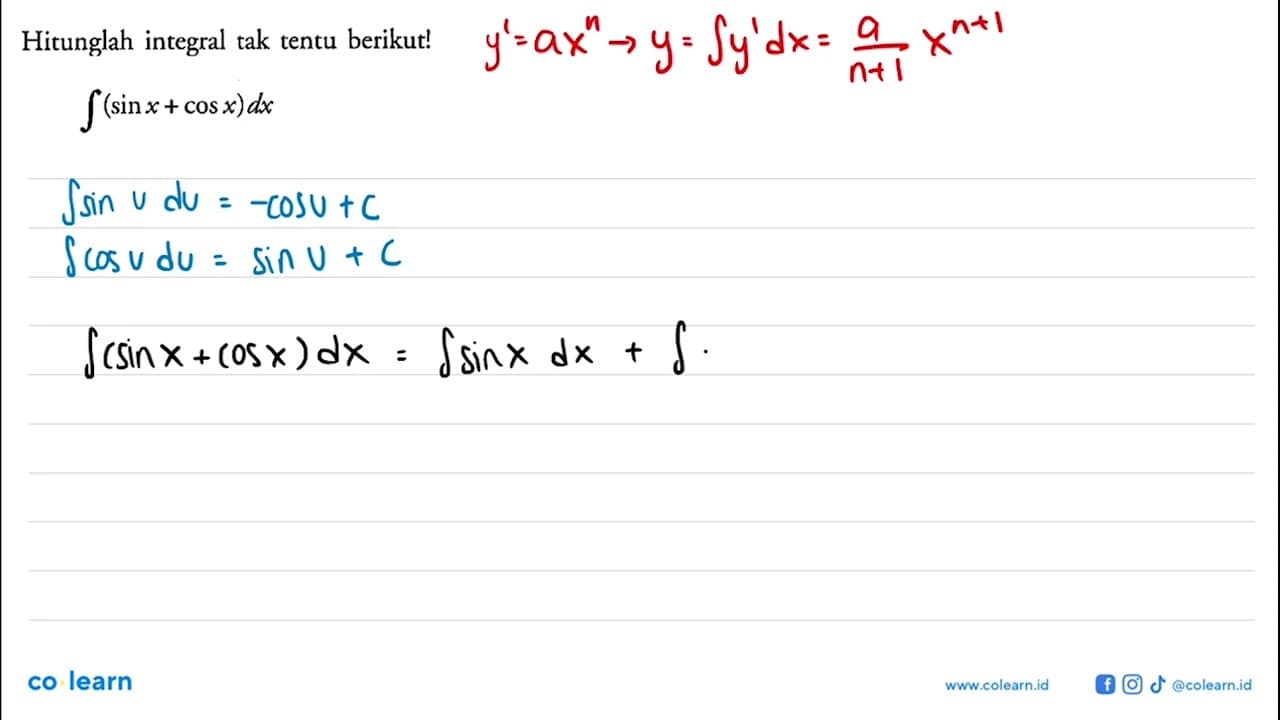 Hitunglah integral tak tentu berikut!
y' = ax^n → y = ∫y'dx = a/(n+1) x^(n+1)
∫(sin x + cos x) dx
∫sin u du = -cos u + C
∫cos u du = sin u + C
∫(sin x + cos x) dx = ∫sin x dx + ∫ .
co·learn
www.colearn.id
@colearn.id